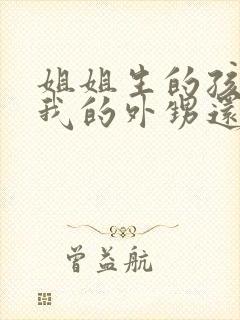 姐姐生的孩
我的外甥還
曾益航